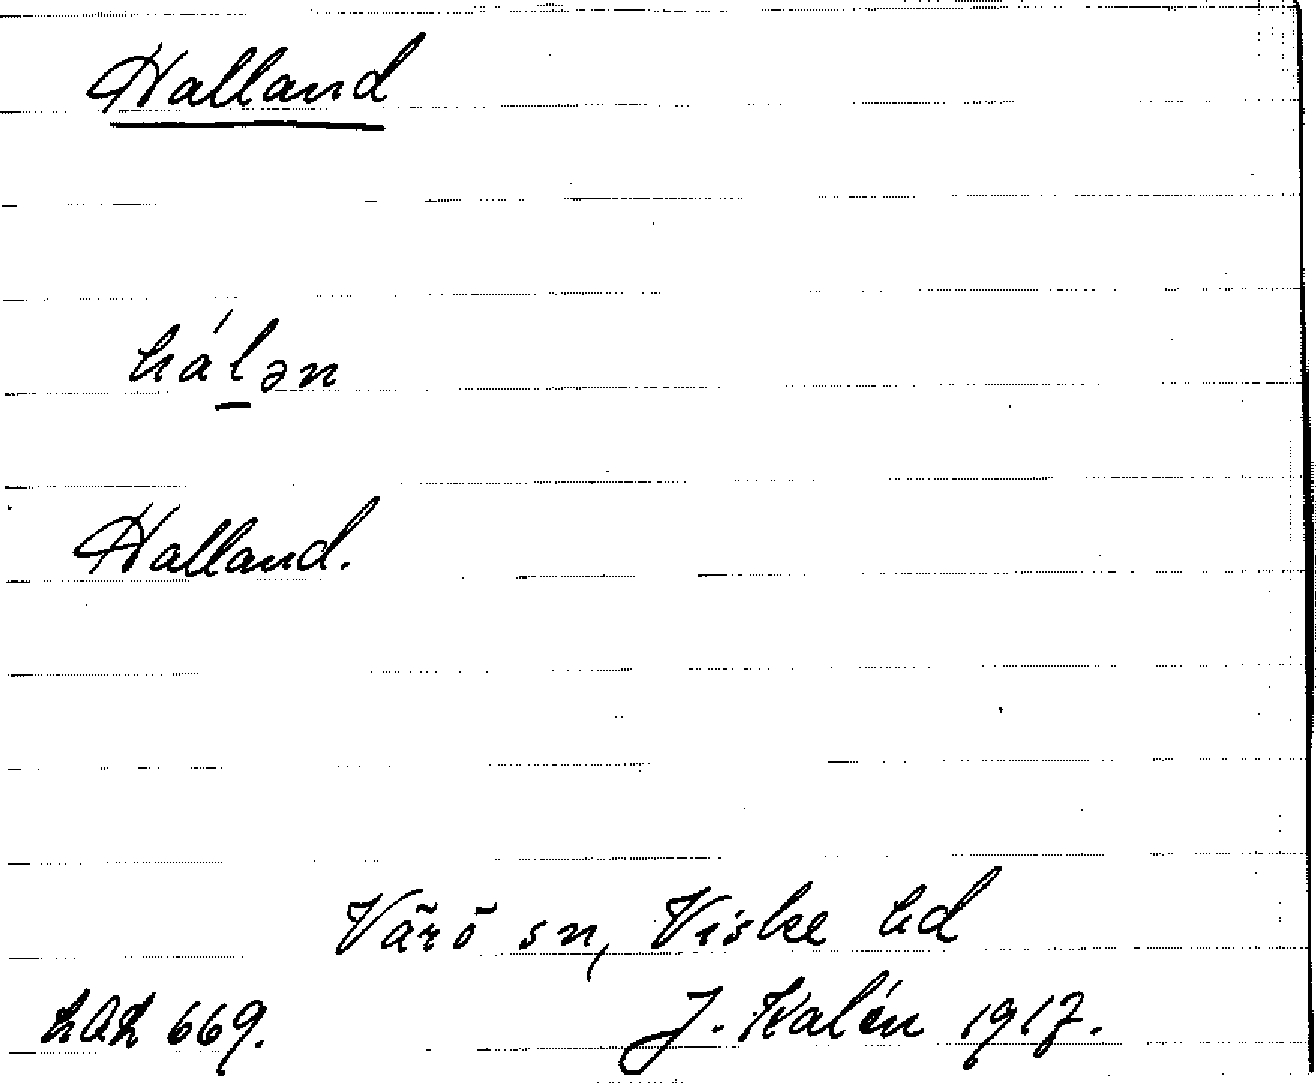 Halland
hál̲ən
Halland.
Värö sn, Viske hd
J. Kalén 1917.